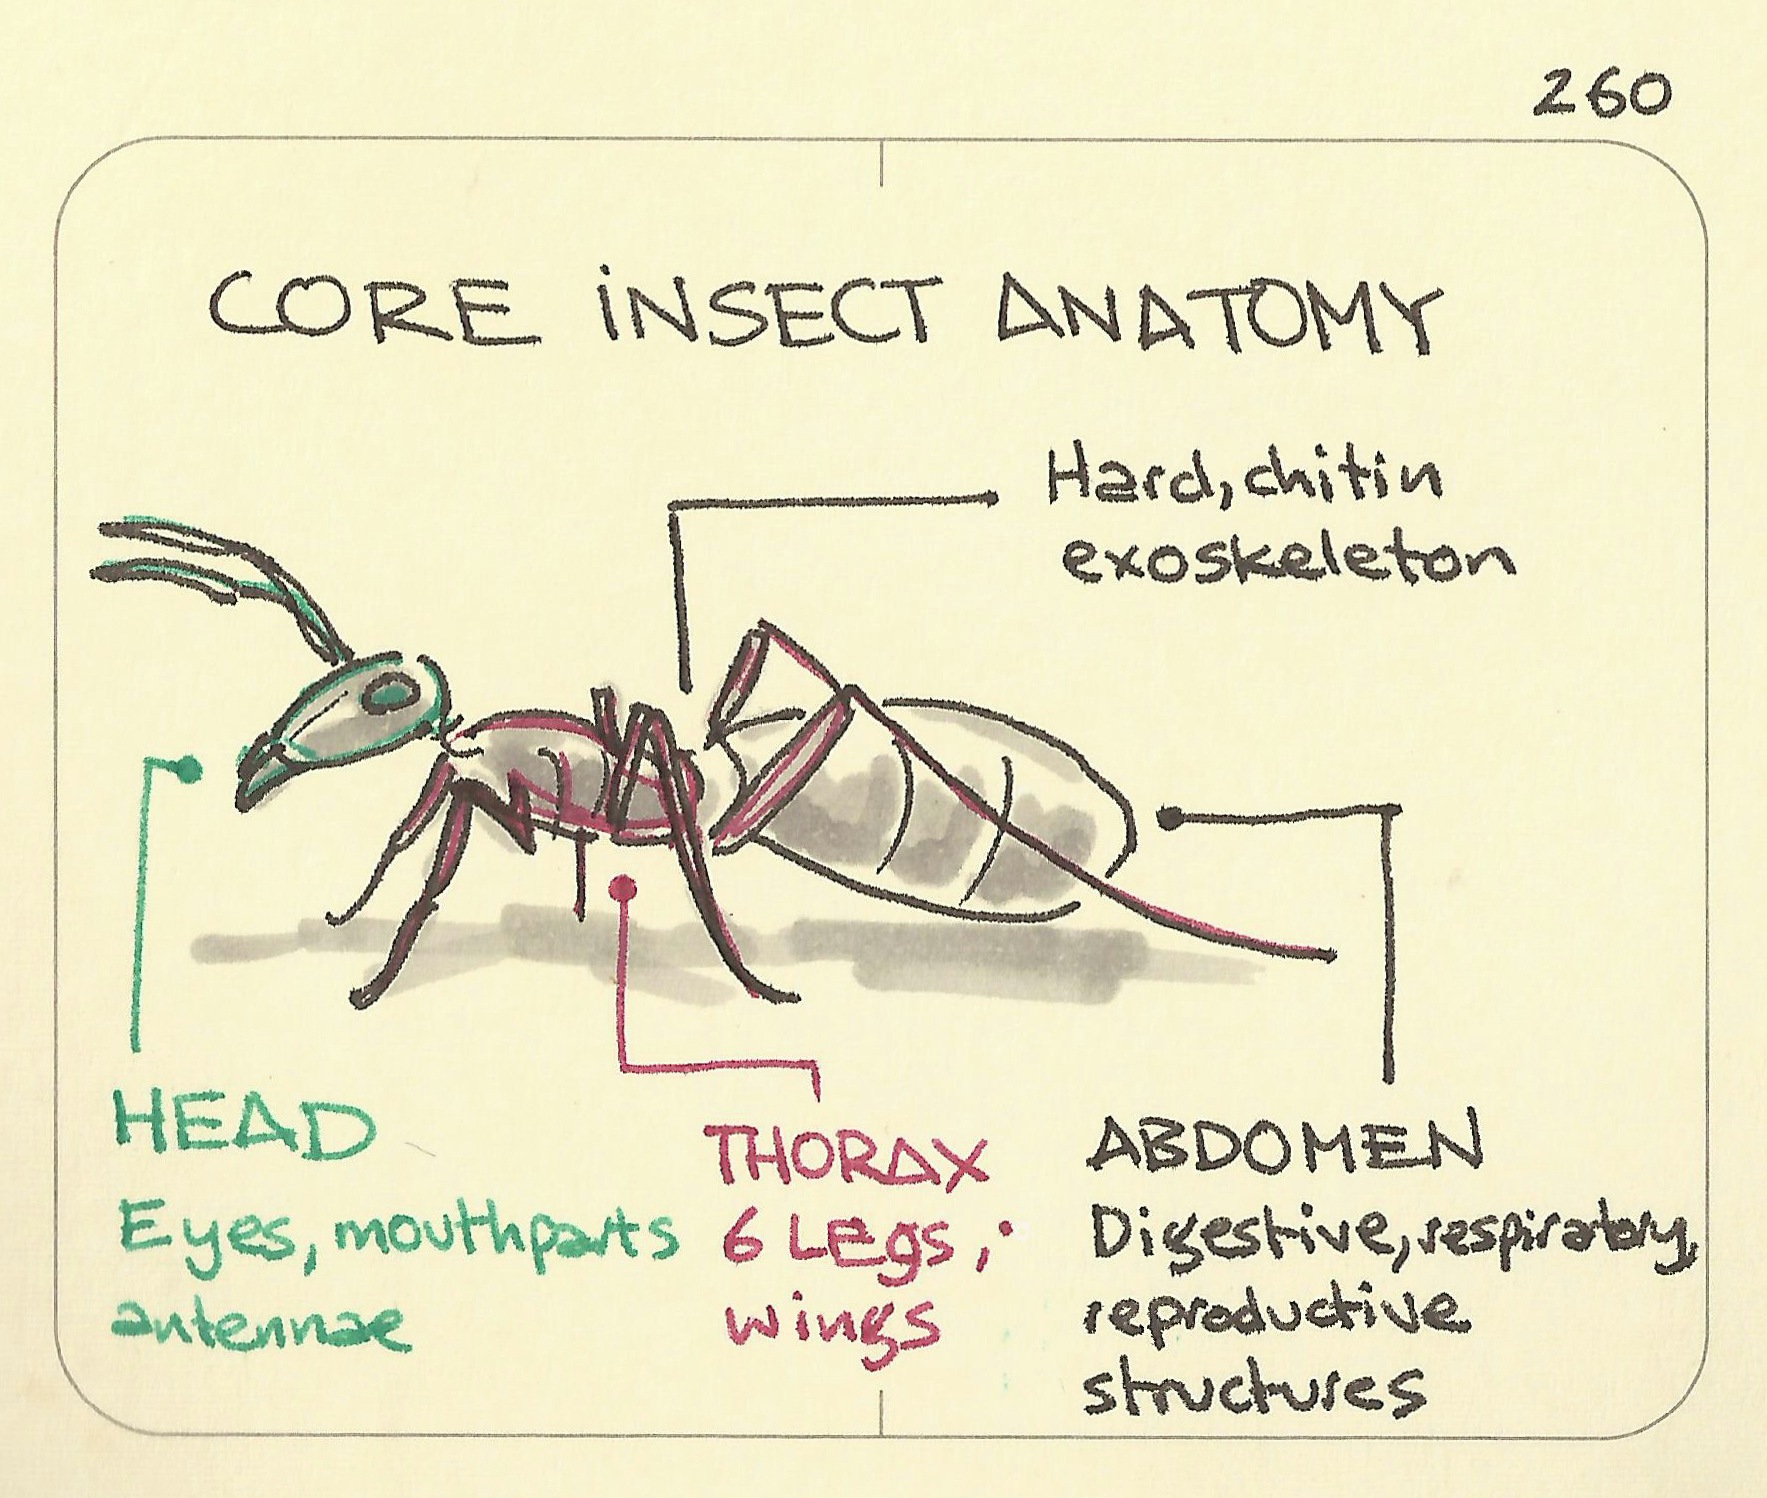 260
CORE INSECT ANATOMY
Hard, chitin
exoskeleton
HEAD
Eyes, mouthparts
antennae
THORAX
6 LEgs ;
wings
ABDOMEN
Digestive, respiratory,
reproductive
structures